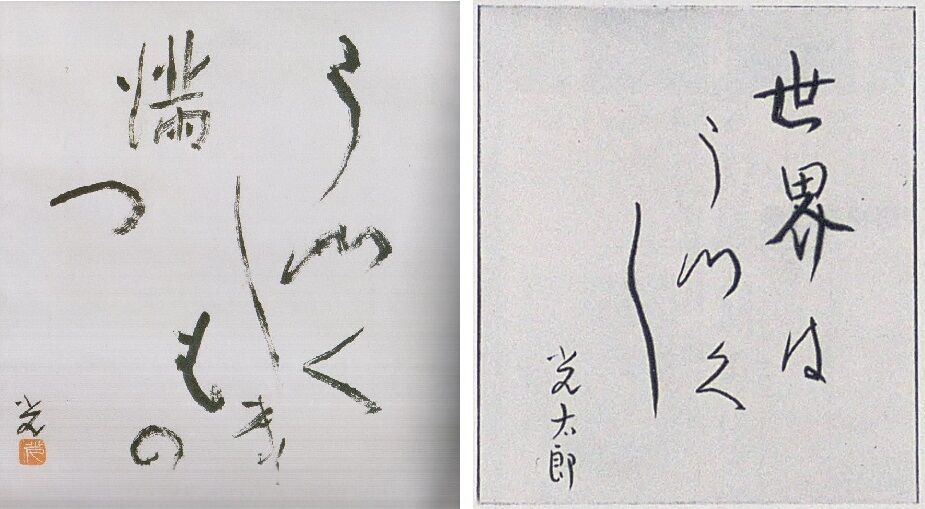 うつく
しき
もの
滿つ
光
世界は
うつく
し
光太郎